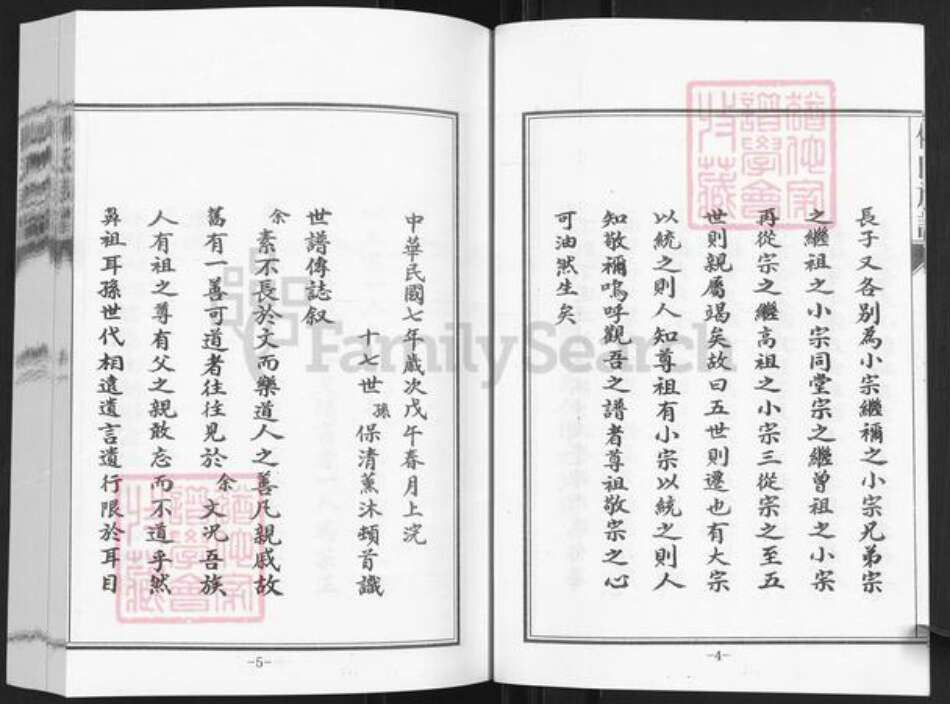 長子又各別為小宗繼禰之小宗兄弟宗
之繼祖之小宗同堂宗之繼曾祖之小宗
再從宗之繼高祖之小宗三從宗之至五
世則親屬竭矣故曰五世則遷也有大宗
以統之則人知尊祖有小宗以統之則人
知敬禰嗚呼觀吾之譜者尊祖敬宗之心
可油然生矣
-4-
中華民國七年歲次戊午春月上浣
十七世孫保清薰沐頓首識
世譜傳誌叙
余素不長於文而樂道人之善凡親戚故
舊有一善可道者往往見於余文況吾族
人有祖之尊有父之親敢忘而不道乎然
鼻祖耳孫世代相遠遺言遺行限於耳目
-5-
FamilySearch
譜學會
收藏